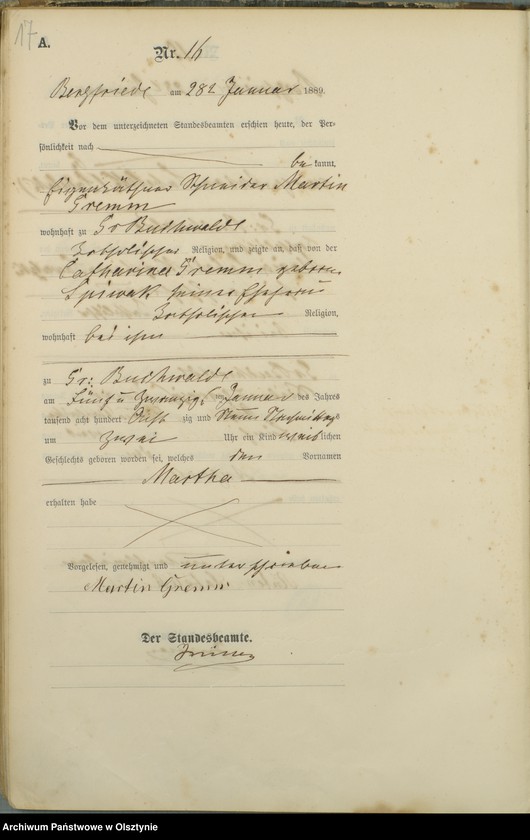 17
A.
Nr. 16
Bergfriede am 28t Januar 1889.
Vor dem unterzeichneten Standesbeamten erschien heute, der Per-
sönlichkeit nach be kannt,
Eigenkäthner Schneider Martin
Gremm
wohnhaft zu Gr Buchwalde
katholischer Religion, und zeigte an, daß von der
Catharina Gremm geborene
Spiwak seiner Ehefrau
katholischer Religion,
wohnhaft bei ihm
zu Gr: Buchwalde
am Fünf u zwanzig ten Januar des Jahres
tausend acht hundert Acht zig und Neun Nachmittags
um Zwei Uhr ein Kind weib lichen
Geschlechts geboren worden sei, welches den Vornamen
Martha
erhalten habe
Vorgelesen, genehmigt und unterschrieben
Martin Gremm
Der Standesbeamte.
Archiwum Państwowe w Olsztynie